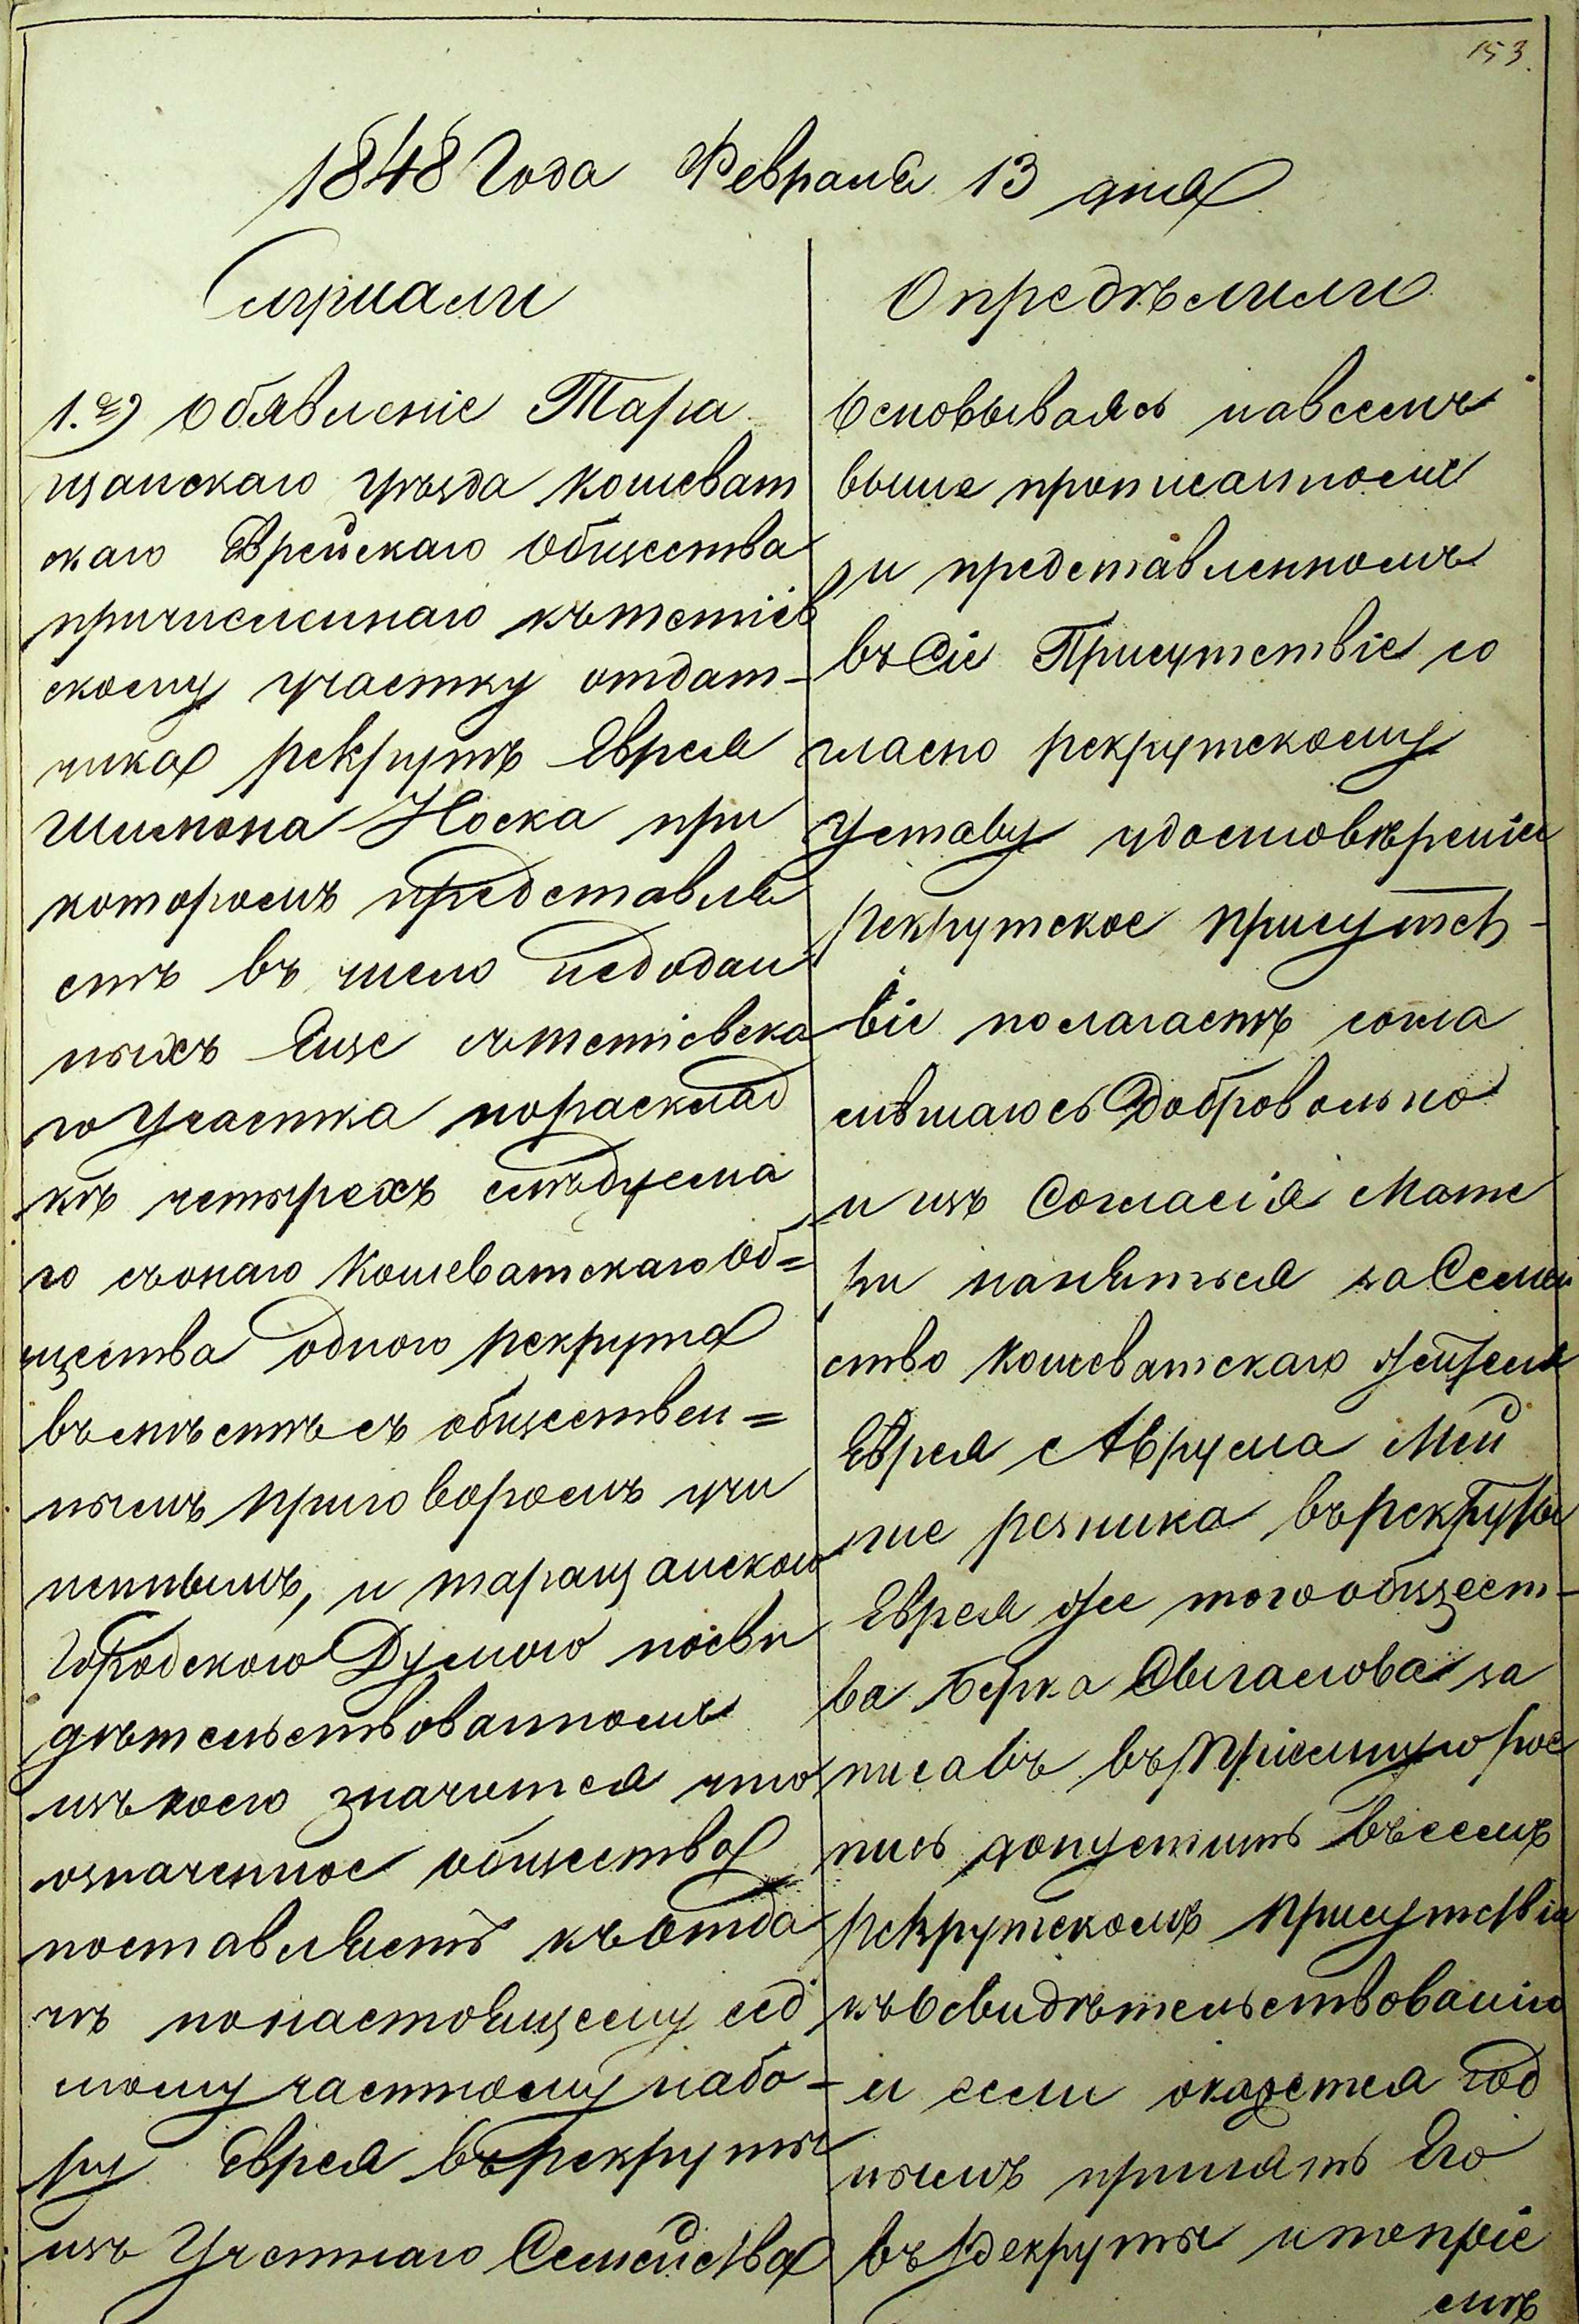 153.
1848 Года Февраля 13 дня
Слушали
1.е) Обявленіе Тара
щанскаго уѣзда Кошеват
скаго Еврейскаго Общества
причисленнаго кътетіев
скому участку отдат-
чика рекрутъ Еврея
Шимона Носка при
которомъ представля
етъ въ число недодан
ныхъ Еще сътетіевска
го Участка пораскладкѣ четырехъ слѣдуема
го съонаго Кошеватскаго Об=
щества одного рекрута
въмѣстѣ съ обществен=
нымъ приговоромъ учи
неннымъ, и таращанскою
Городскою Думою посви
дѣтельствованномъ
изъ коего значится что
означенное общество
поставляетъ къотда
чѣ понастоящему сед
мому частному набо-
ру Еврея въ рекруты
изъ Учетнаго Семейства
Опредѣлили
Основываясь навсемъ
выше прописанномъ
и представленномъ
въ Сіе Присутствіе со
гласно рекрутскому
Уставу удостовѣреніи
рекрутское присутст-
віе полагаетъ согла
сившагось Добровольно
и изъ Согласія Мате
ри нанятся заСемей
ство Кошеватскаго жителя
Еврея Аврума Мей
резника въ рекруты
Еврея же того общест-
ва Берка за
писавъ въ Пріемную рос
пись допустить въсемъ
рекрутскомъ присутствіи
къ Освидѣтельствованію
и если окажется год
нымъ принять Его
въ рекруты и попріе
мѣ